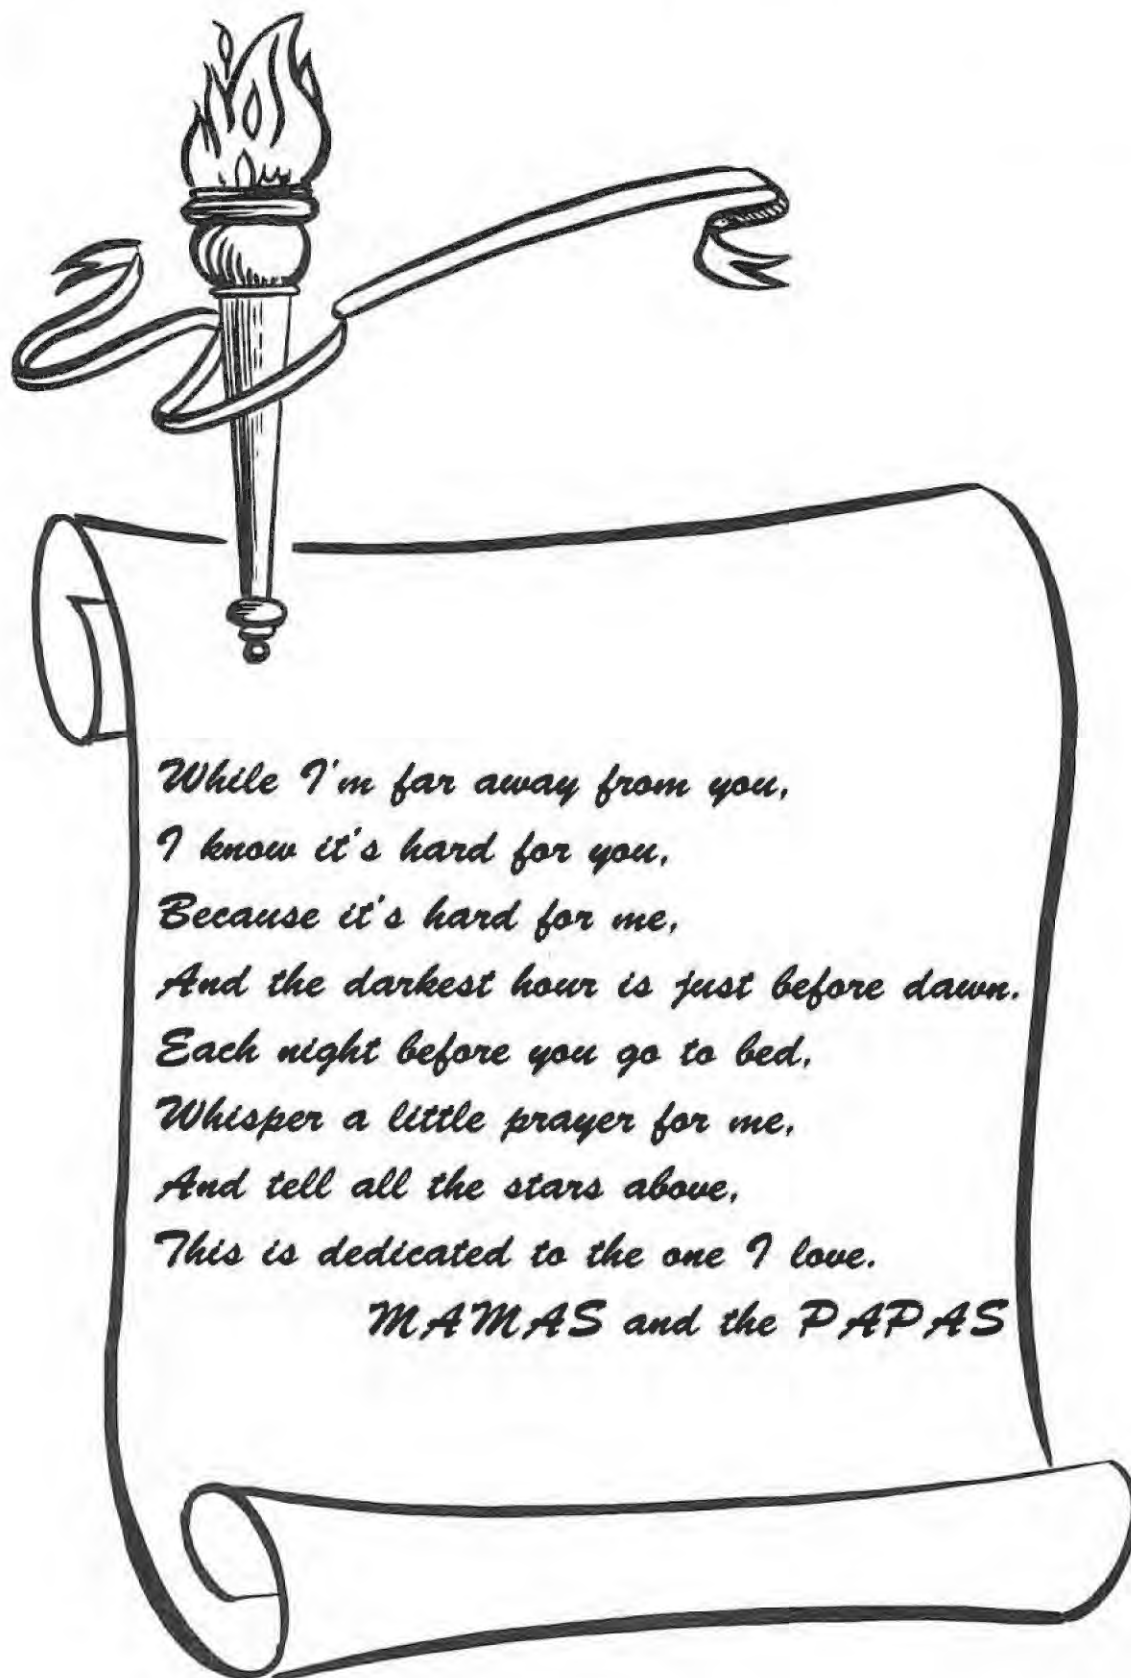 While I'm far away from you,
I know it's hard for you,
Because it's hard for me,
And the darkest hour is just before dawn.
Each night before you go to bed,
Whisper a little prayer for me,
And tell all the stars above,
This is dedicated to the one I love.
MAMAS and the PAPAS